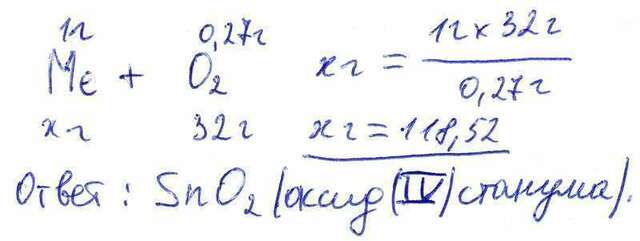 1г 0,27г
Ме + O₂ хг = 1г х 32г / 0,27г
хг 32г хг = 118,52
Ответ: SnO₂ (оксид (IV) станума).